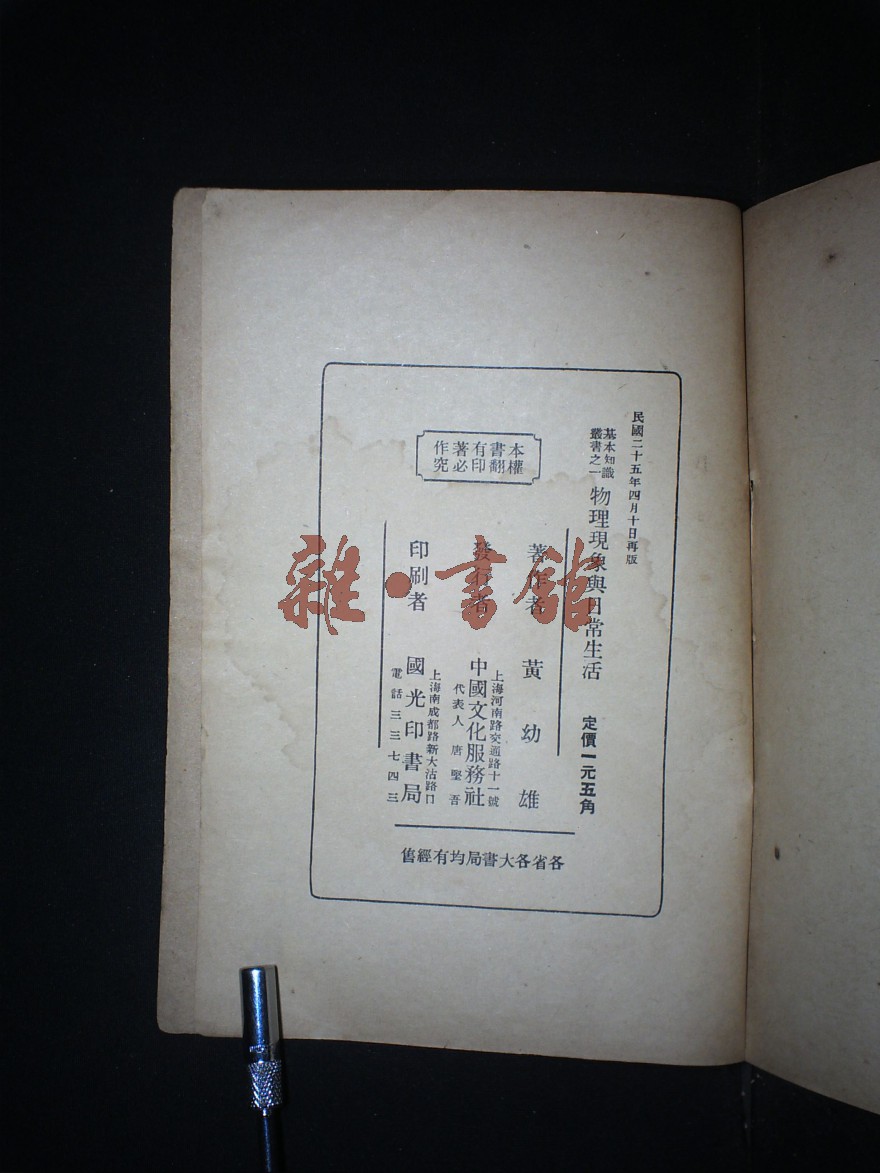 民國二十五年四月十日再版
基本知識
叢書之一
物理現象與日常生活
定價一元五角
著作者 黃幼雄
上海河南路交通路十一號
發行者 中國文化服務社
代表人 唐堅吾
上海南成都路新大沽路口
印刷者 國光印書局
電話三三七四三
本書有著作
權翻印必究
各省各大書局均有經售
雜·書館